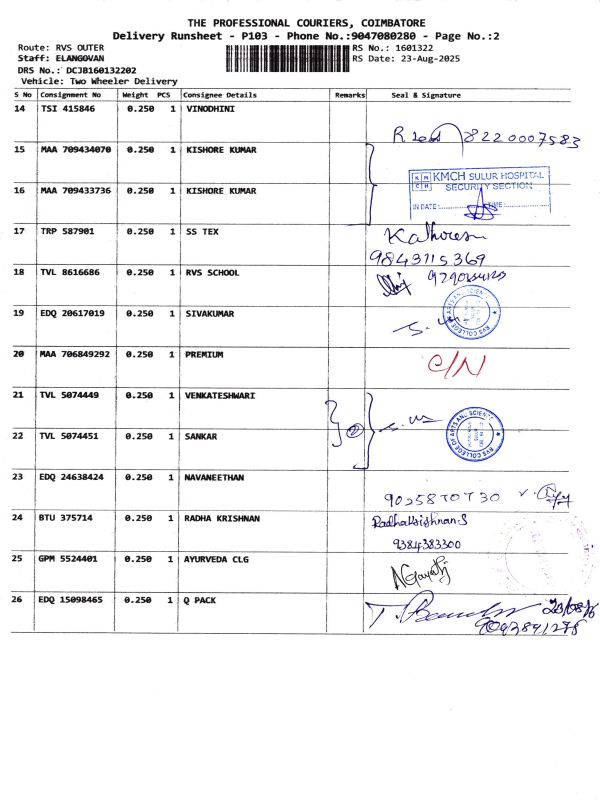 THE PROFESSIONAL COURIERS, COIMBATORE
Delivery Runsheet - P103 - Phone No.:9047080280 - Page No.:2
Route: RVS OUTER RS No.: 1601322
Staff: ELANGOVAN RS Date: 23-Aug-2025
DRS No.: DCJB160132202
Vehicle: Two Wheeler Delivery
S No Consignment No Weight PCS Consignee Details Remarks Seal & Signature
14 TSI 415846 0.250 1 VINODHINI
8220007583
15 MAA 709434070 0.250 1 KISHORE KUMAR
KMCH SULUR HOSPITAL
SECURITY SECTION
16 MAA 709433736 0.250 1 KISHORE KUMAR
IN DATE: TIME:
17 TRP 587901 0.250 1 SS TEX
9843115369
18 TVL 8616686 0.250 1 RVS SCHOOL
19 EDQ 20617019 0.250 1 SIVAKUMAR
RVS COLLEGE OF ARTS AND SCIENCE
20 MAA 706849292 0.250 1 PREMIUM C/N
21 TVL 5074449 0.250 1 VENKATESHWARI
2
RVS COLLEGE OF ARTS AND SCIENCE
22 TVL 5074451 0.250 1 SANKAR
23 EDQ 24638424 0.250 1 NAVANEETHAN
24 BTU 375714 0.250 1 RADHA KRISHNAN RadhaKrishnan.S
9384383300
25 GPM 5524401 0.250 1 AYURVEDA CLG
NGayatri
26 EDQ 15098465 0.250 1 Q PACK